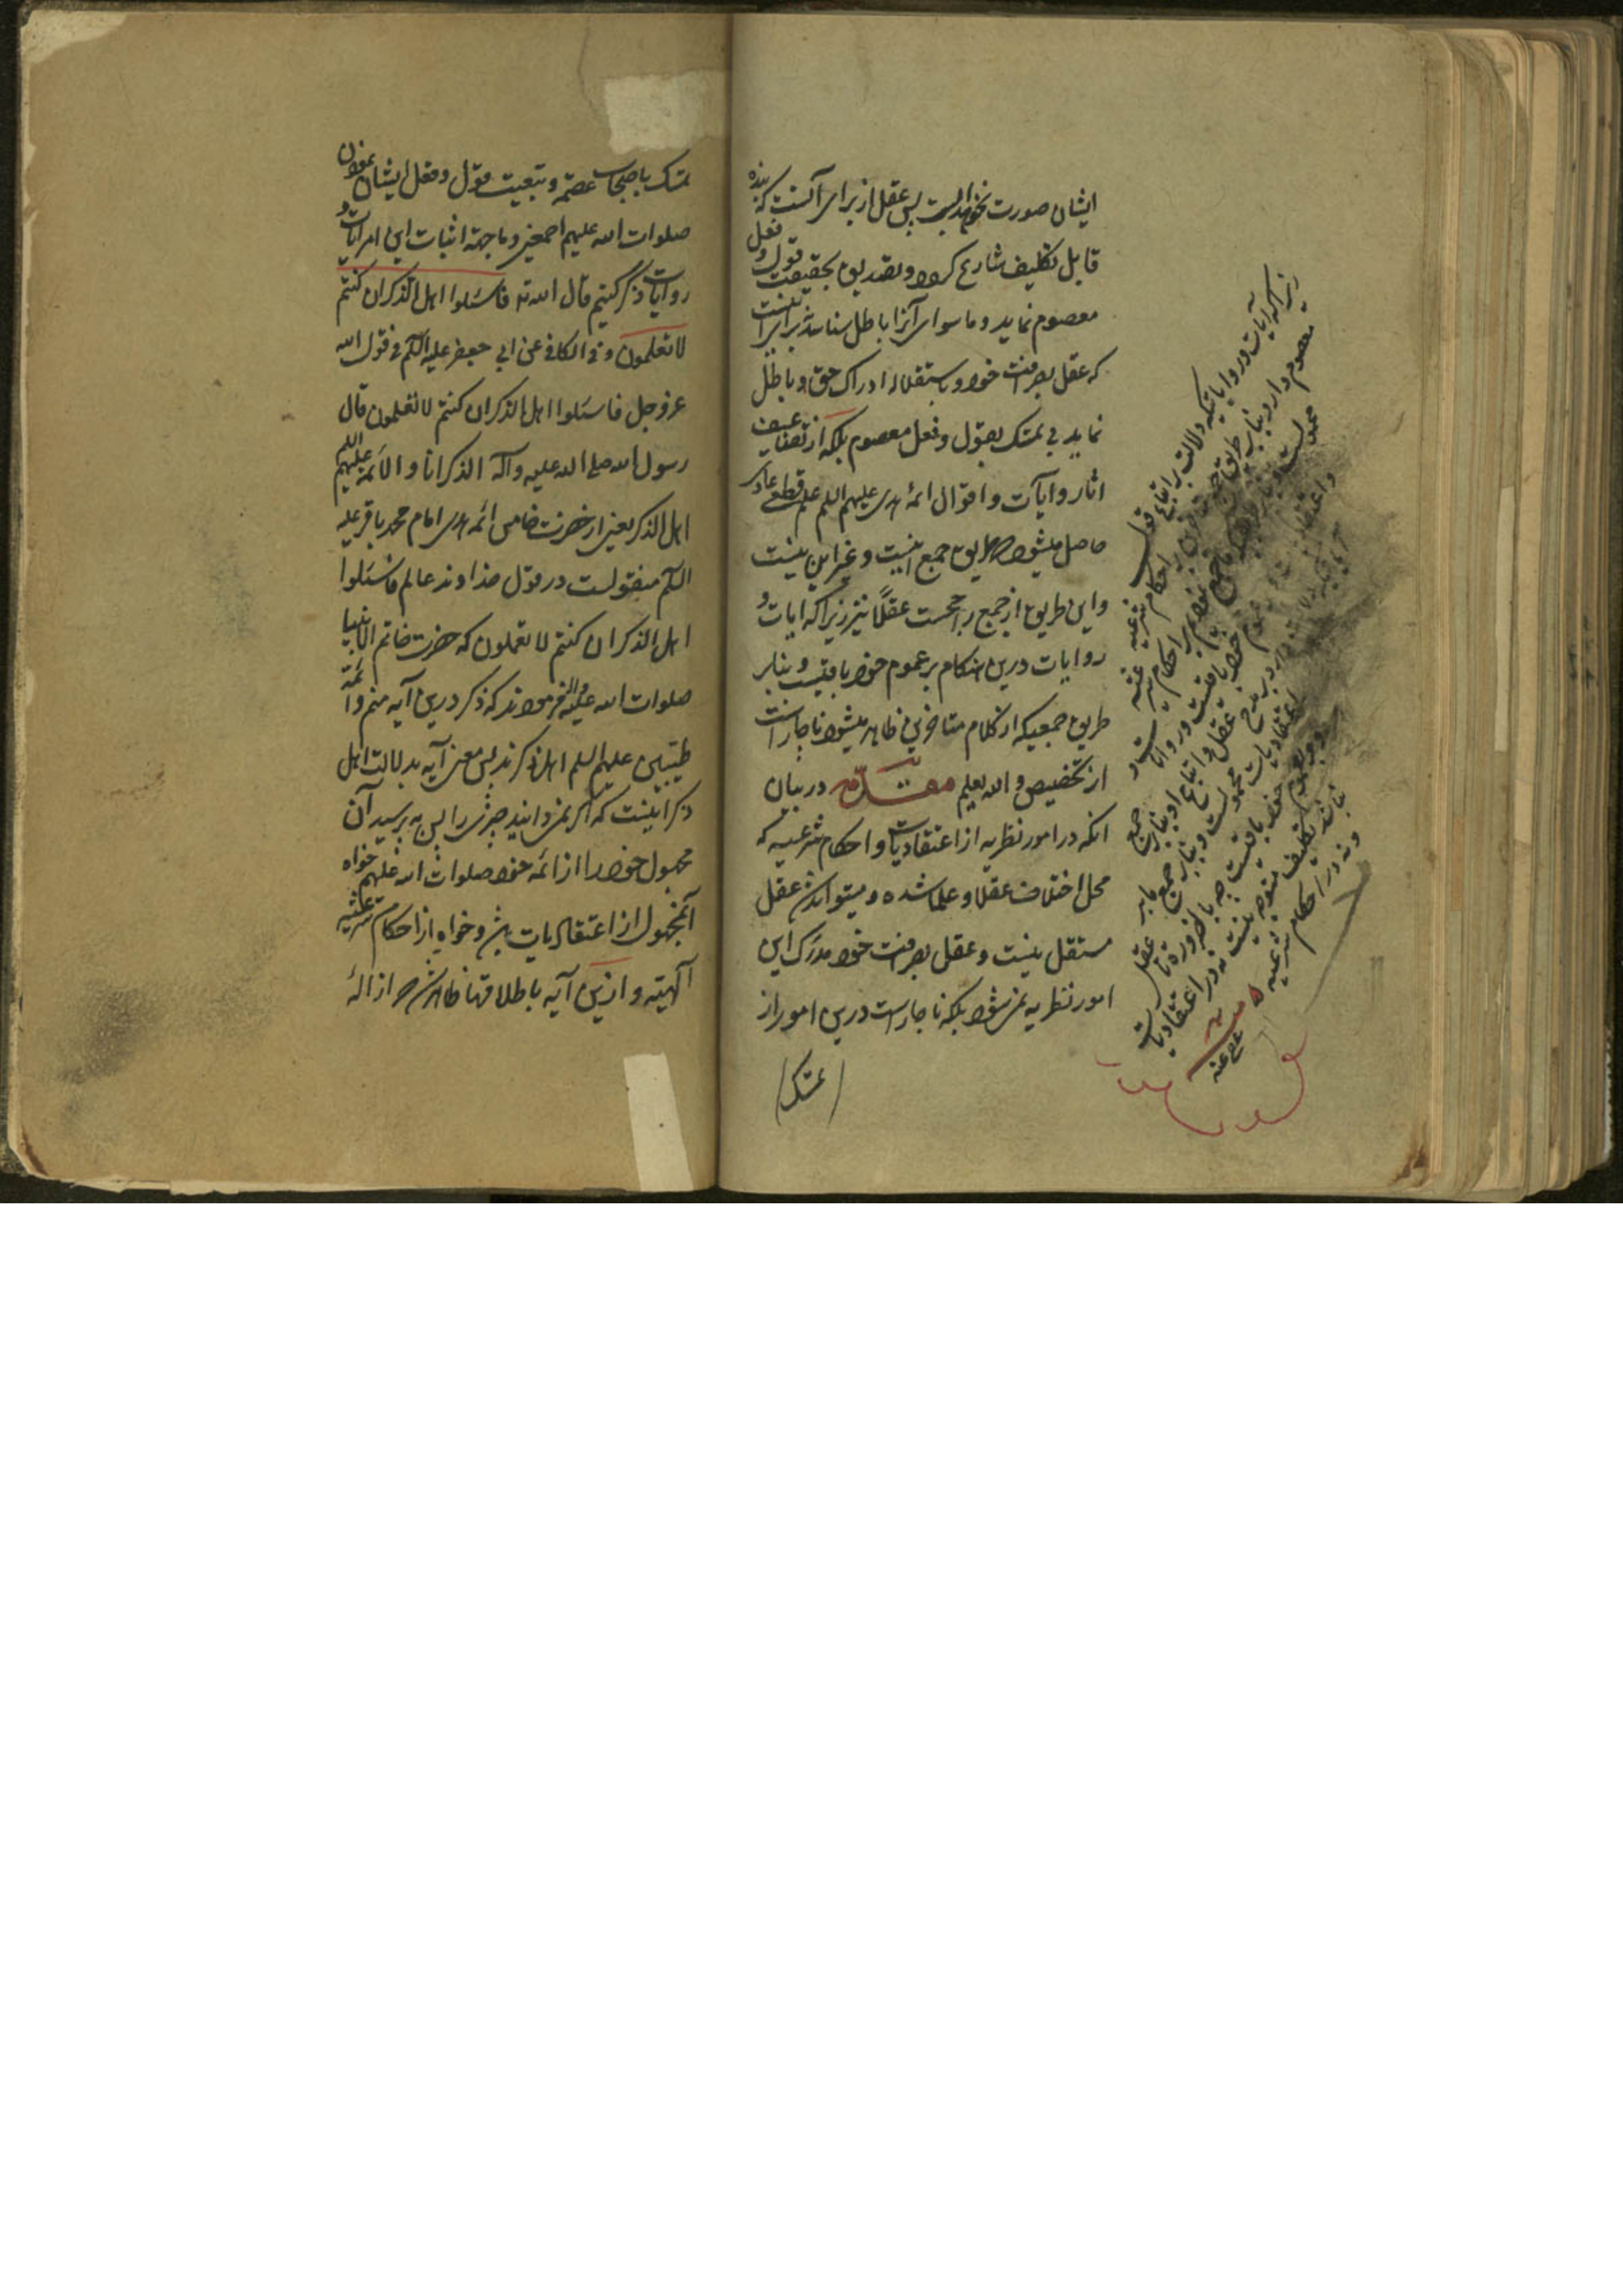 ایشان صورت نخواهد بست پس عقل از برای آنست که بنده
قابل تکلیف شارع گردد و تصدیق بحقیقت قول و فعل
معصوم نماید و ماسوای آنرا باطل شناسد برای این نیست
که عقل بصرافت خود و باستقلال ادراک حق و باطل
نماید بی تمسک بقول و فعل معصوم بلکه از تضاعیف
آثار و آیات و اقوال ائمهٔ هدی علیهم السلم علم قطعی عادی
حاصل میشود که طریق جمع اینست و غیر این نیست
و این طریق از جمیع راجحست عقلاً نیز زیرا که آیات و
روایات درین هنگام بر عموم خود باقیست و بنابر
طریق جمعیکه از کلام متاخرین ظاهر میشود ناچار است
از تخصیص و الله یعلم مقدّمه در بیان
آنکه در امور نظریه از اعتقادیات و احکام شرعیه که
محل اختلاف عقلا و علما شده و میتواند شد عقل
مستقل نیست و عقل بصرافت خود مدرک این
امور نظریه نمیشود بلکه ناچار است درین امور از
تمسک
زیرا که آیات و روایاتیکه دلالت بر اتباع قول
معصوم دارد بنابر طریق جمع
احکام شرعیه
خود باقیست و روایات
عقل و اتباع او بنابرین جمع
اعتقادیات محمولست و بنابر جمع ما بر
عموم خود باقیست چه بالضروره تا عقل
نباشد تکلیف متوجه نیست نه در اعتقادیات
و نه در احکام شرعیه
عفی عنه
تمسک باصحاب عصمة و تبعیت قول و فعل ایشان نمودن
صلوات الله علیهم اجمعین و ما جهة اثبات این امر آیات و
روایات ذکر کنیم قال الله ته فاسئلوا اهل الذکر ان کنتم
لا تعلمون و فی الکافی عن ابی جعفر علیه السلم فی قول الله
عز و جل فاسئلوا اهل الذکر ان کنتم لا تعلمون قال
رسول الله صلی الله علیه و آله الذکر انا و الائمة علیهم السلم
اهل الذکر یعنی از حضرت خامس ائمه هدی امام محمد باقر علیه
السلم منقولست در قول خداوند عالم فاسئلوا
اهل الذکر ان کنتم لا تعلمون که حضرت خاتم الانبیا
صلوات الله علیه و آله فرمودند که ذکر درین آیه منم و ائمة
طیّبین علیهم السلم اهل ذکرند پس معنی آیه بدلالت اهل
ذکر اینست که اگر نمیدانید چیزی را پس بپرسید آن
مجهول خود را از ائمه خود صلوات الله علیهم خواه
آنمجهول از اعتقادیات باشد و خواه از احکام شرعیه
آلهیّه و ازین آیه باطلاقها ظاهر شد که ازالهٔ